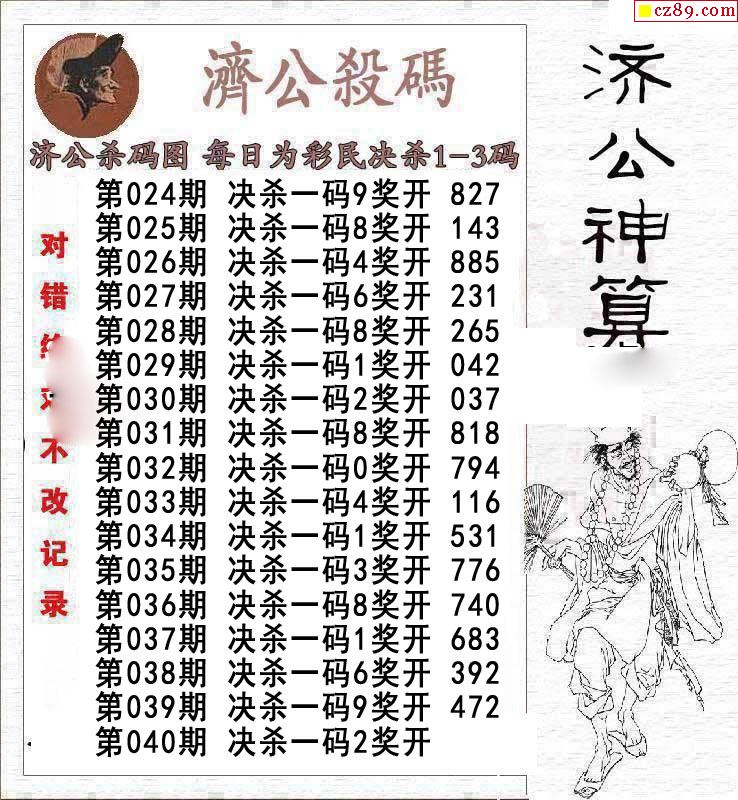 cz89.com
濟公殺碼
济公杀码图 每日为彩民决杀1-3码
第024期 决杀一码9奖开 827
第025期 决杀一码8奖开 143
第026期 决杀一码4奖开 885
第027期 决杀一码6奖开 231
第028期 决杀一码8奖开 265
第029期 决杀一码1奖开 042
第030期 决杀一码2奖开 037
第031期 决杀一码8奖开 818
第032期 决杀一码0奖开 794
第033期 决杀一码4奖开 116
第034期 决杀一码1奖开 531
第035期 决杀一码3奖开 776
第036期 决杀一码8奖开 740
第037期 决杀一码1奖开 683
第038期 决杀一码6奖开 392
第039期 决杀一码9奖开 472
第040期 决杀一码2奖开
对错不改记录
济公神算